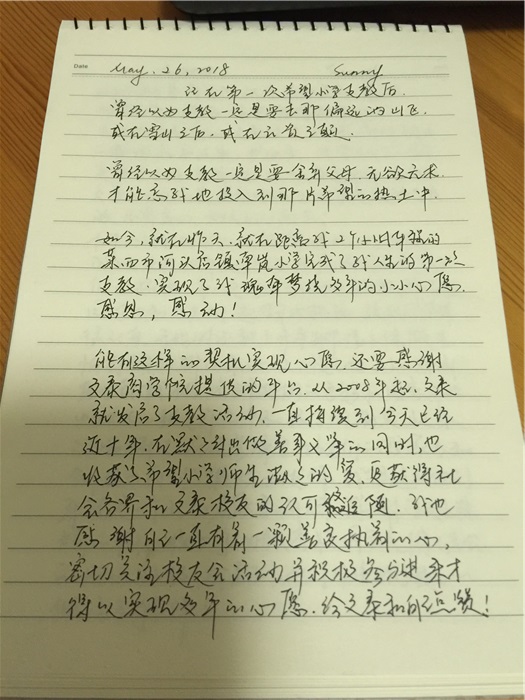 Date May. 26, 2018 Sunny
记在第一次希望小学支教后
曾经以为支教一定是要去那偏远的山区
或在雪山之后，或在云贵之巅
曾经以为支教一定是要舍弃父母，无欲无求
才能忘我地投入到那片希望的热土中
如今，就在昨天，就在距离我2个小时车程的
莱西市河头店镇 小学完成了我人生的第一次
支教，实现了我魂牵梦绕多年的小小心愿，
感恩，感动！
能有这样的契机实现心愿，还要感谢
文泰商学院提供的平台，从2008年起，文泰
就发启了支教活动，一直持续到今天已经
近十年，在默默付出做善事义举的同时，也
收获了希望小学师生满满的爱，更获得社
会各界和文泰校友的认可 追随，我也
感谢自己一直有着一颗善良执着的心，
密切关注校友会活动并积极参与进来才
得以实现多年的心愿，给文泰和自己点赞！